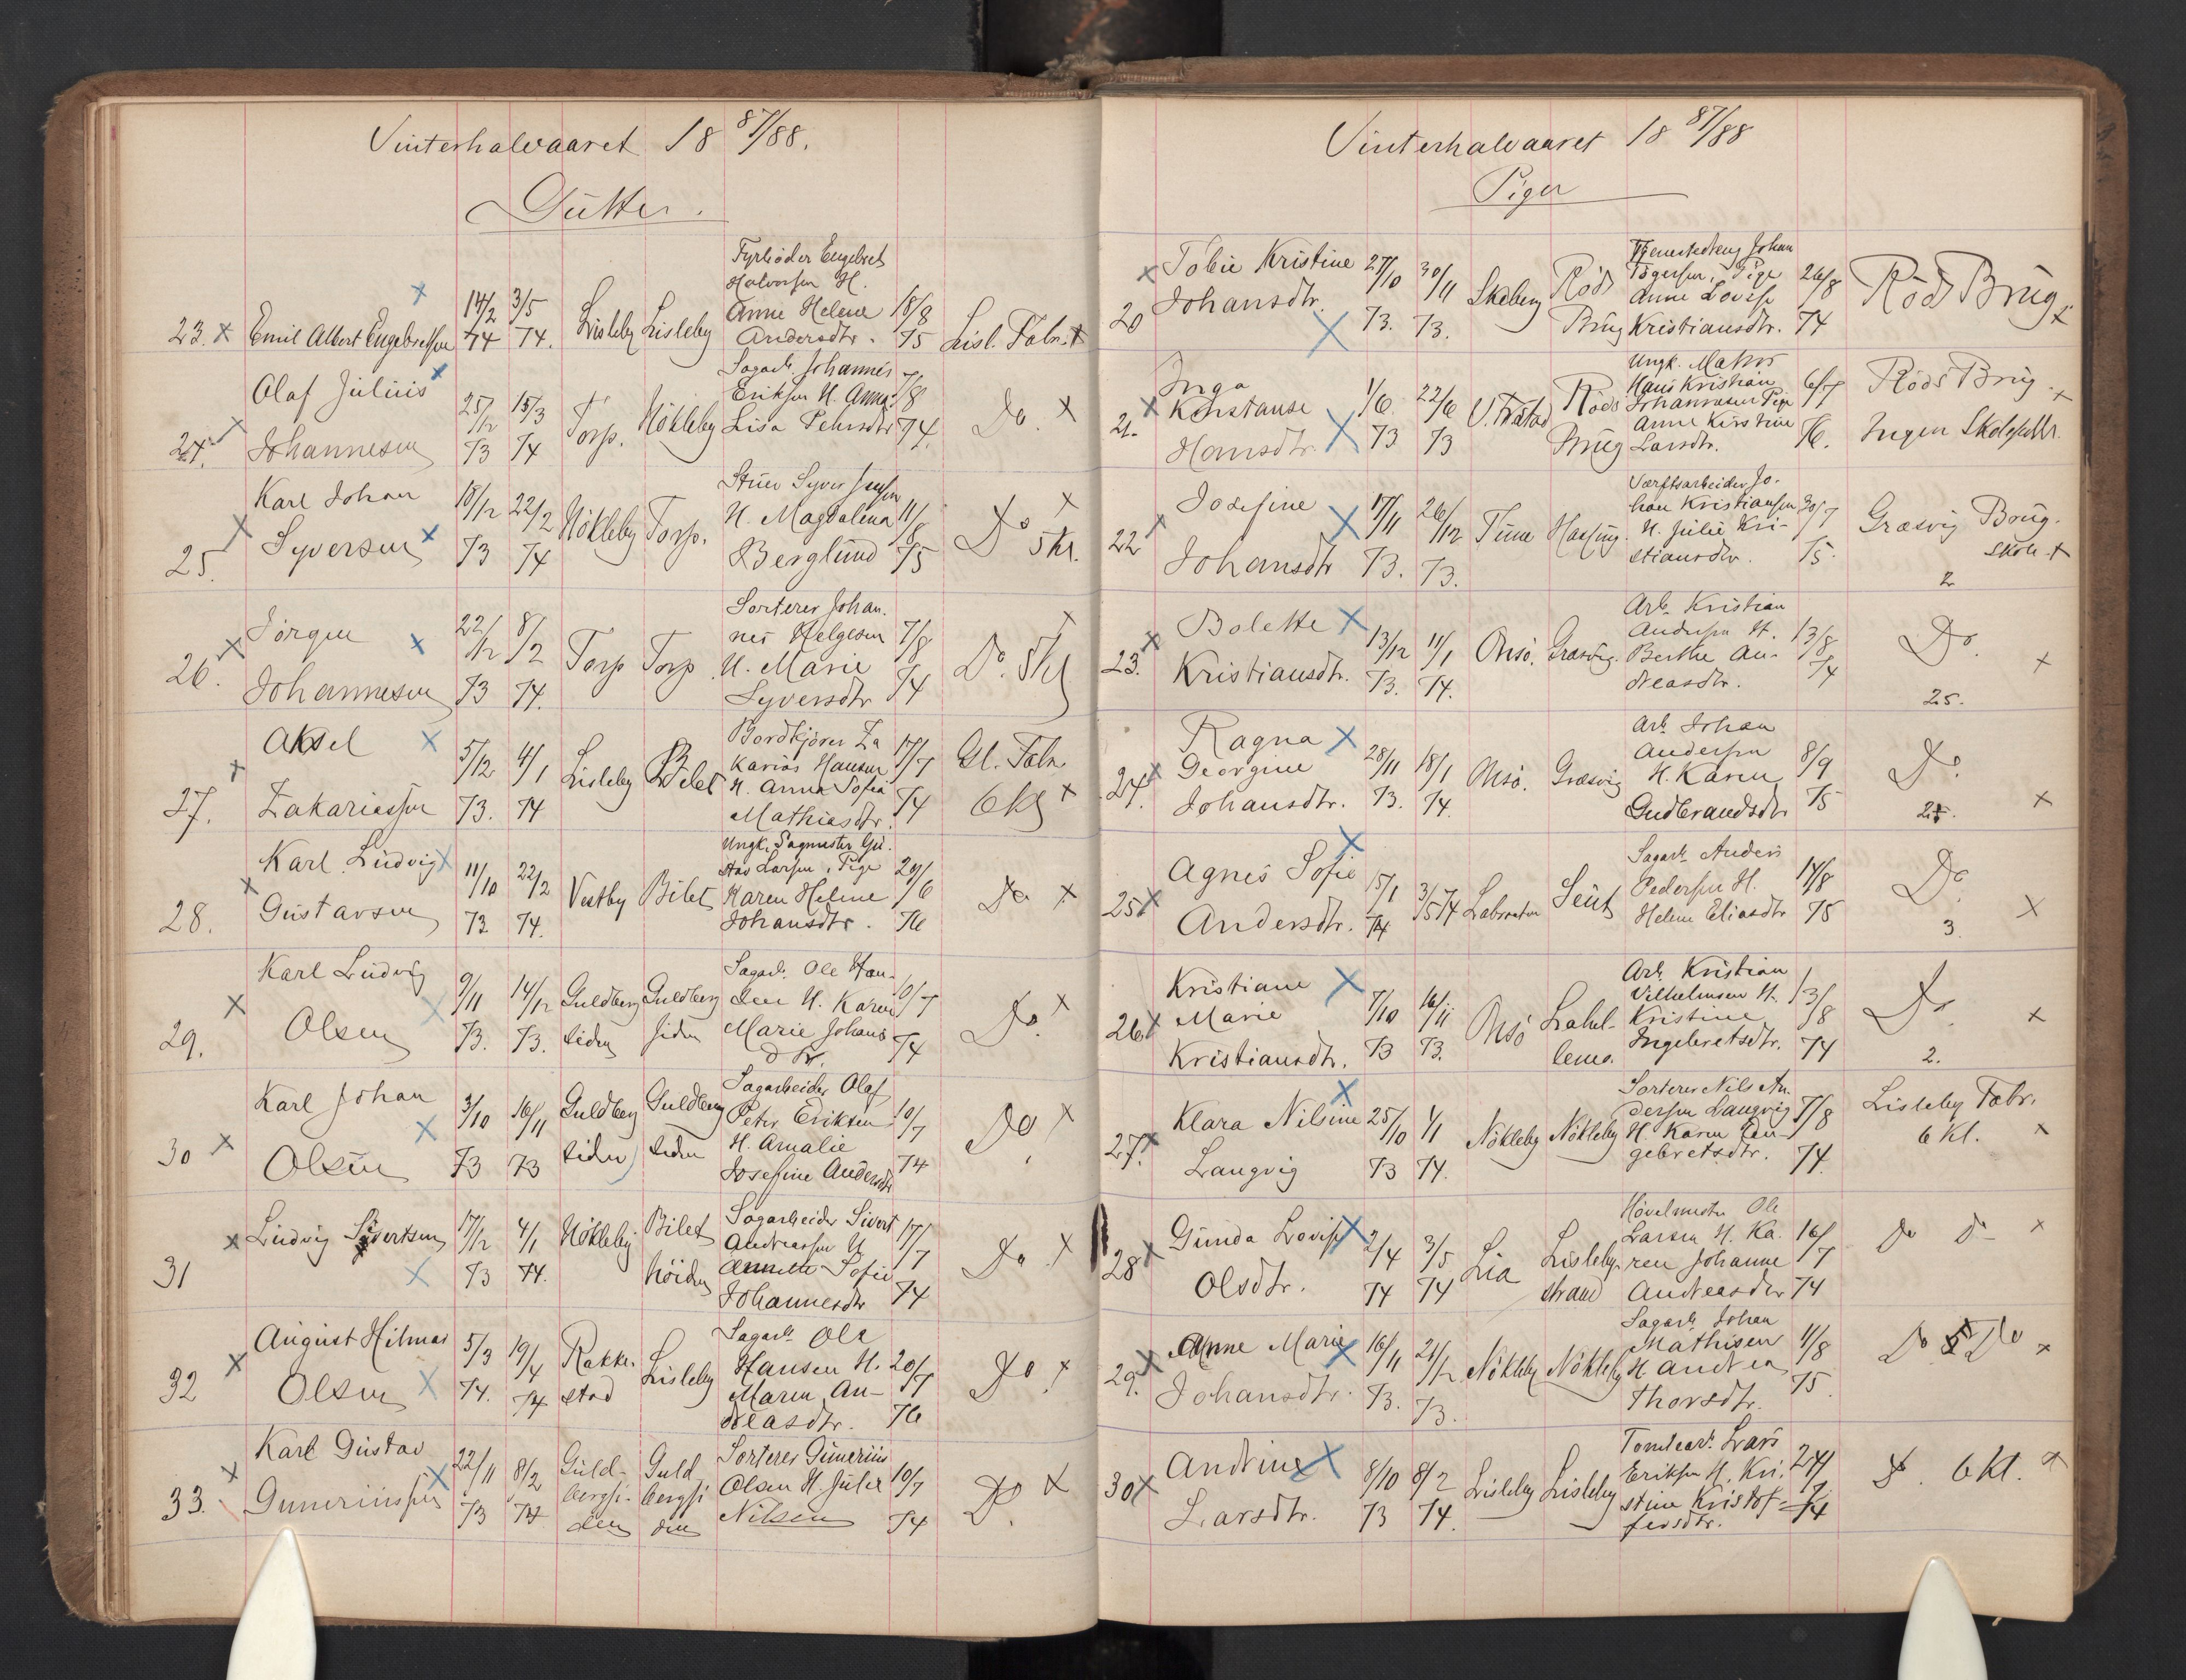 Vinterhalvaaret 18 87/88.
Gutter.
Fyrbøder Engebret
Halvorsen H.
23. x Emil Albert Engebretsen 14/2 74 3/5 74. Lisleby Lisleby Anne Helene Andersdtr. 18/8 75 Lisl. Fabr. x
Olaf Julius
24. Johannesen 25/12 73 15/3 74 Torp. Nökleby
Sagarb. Johannes
Eriksen H. Anna
Lisa Pehrsdtr 7/8 74. Do. x
Karl Johan
25. Syversen 18/12 73 22/2 74 Nökleby Torp.
Stuer Syver Jensen
H. Magdalena
Berglund 11/8 75 Do 5 Kl. x
Jörgen
26. Johannesen 22/12 73 8/2 74. Torp Torp
Sorterer Johan.
nes Helgesen
H. Marie
Syversdtr 7/8 74 Do. 5 Kl
Aksel
27. Zakariassen 5/12 73. 4/1 74 Lisleby Bilet
Bordkjører Za
karias Hansen
H. Anna Sofia
Mathiasdtr. 17/7 74 Gl. Fabr.
6 Kl x
Karl Ludvig
28. Gustavsen 11/10 73 22/2 74. Vestby Bilet
Ungk. Sagmester Gu.
stav Larsen, Pige
Karen Helene
Johansdtr. 29/6 76 Do x
Karl Ludvig
29. Olsen 9/11 73. 14/12 73. Guldberg
siden Guldberg
siden
Sagarb. Ole Han.
sen H. Karen
Marie Johans
dtr. 10/7 74 Do. x
Karl Johan
30 x Olsen 3/10 73 16/11 73 Guldberg
siden Guldberg
siden
Sagarbeider Olaf
Peter Eriksen
H. Amalie
Josefine Andersdtr 10/7 74 Do. x
31 x Ludvig Sivertsen 17/12 73 4/1 74. Nökleby Bilet
höiden
Sagarbeider Sivert
Andreassen H
Annette Sofie
Johannesdtr 17/7 74 Do x
August Hilmar
32 x Olsen 5/3 74. 19/4 74 Rakke-
stad Lisleby
Sagarb. Ole
Hansen H.
Maren An-
dreasdtr. 20/7 76 Do. x
Karl Gustav
33. Guneriussen 22/11 73 8/2 74 Guld-
bergsi-
den Guld
bergsi
den
Sorterer Gunerius
Olsen H. Julie
Nilsen 10/7 74 Do. x
Vinterhalvaaret 18 87/88
Piger
20 x Tobie Kristine
Johansdtr. 27/10 73. 30/11 73. Skeberg Röds
Brug
Johan
Tögersen, Pige
Anne Lovise
Kristiansdtr. 26/8 74 Röds Brug x
21. x Inga
Konstanse
Hansdtr. 1/6 73 22/6 73 V. Röds
Brug
Ungk. Matros
Hans Kristian
Johannesen Pige
Anne Kirstine
Larsdtr. 6/7 76. Röds Brug.
Ingen Skolepl.
22 x Josefine
Johansdtr 17/11 73. 26/12 73. Tune
Værftsarbeider Jo-
han Kristiansen
H. Julie Kri-
stiansdtr. 30/7 75. Græsvig Brug.
Skole x
2
23. x Bolette
Kristiansdtr. 13/12 73. 11/1 74. Onsö. Græsvig.
Arb. Kristian
Andersen H.
Berthe An-
dreasdtr. 13/8 74 Do.
25. x
24. x Ragna
Georgine
Johansdtr. 28/11 73. 18/1 74. Onsö. Græsvig
Arb. Johan
Andersen
H. Karen
Gudbrandsdtr 8/9 75 Do.
x
25 x Agnes Sofie
Andersdtr. 15/1 74 3/5 74 Seut
Sagarb. Anders
Pedersen H.
Helene Eliasdtr 14/8 75 Do.
3. x
26 x Kristiane
Marie
Kristiansdtr. 7/10 73 16/11 73. Onsö Lahel-
lemo.
Arb. Kristian
Vilhelmsen H.
Kristine
Ingebretsdtr. 13/8 74 Do.
2. x
27. x Klara Nilsine
Langvig 25/10 73 4/1 74. Nökleby Nökleby
Sorterer Nils An.
dersen Langvig
H. Karen En-
gebretsdtr. 7/8 74. Lisleby Fabr.
6 Kl. x
28 x Gunda Lovise
Olsdtr. 2/4 74 3/5 74 Lia Lisleby-
strand
Hövelmester Ole
Larsen H. Ka.
ren Johanne
Andreasdtr 16/7 74 Do Do x
29. x Anne Marie
Johansdtr. 16/11 73. 21/12 73. Nökleby Nökleby
Sagarb. Johan
Mathisen
H Andrea
Thorsdtr. 11/8 75. Do Do x
30 x Andrine
Larsdtr. 8/10 73 8/2 74. Lisleby Lisleby
Tomtearb. Lars
Eriksen H. Kri.
stine Kristof-
fersdtr. 24/7 74 Do. 6 Kl. x